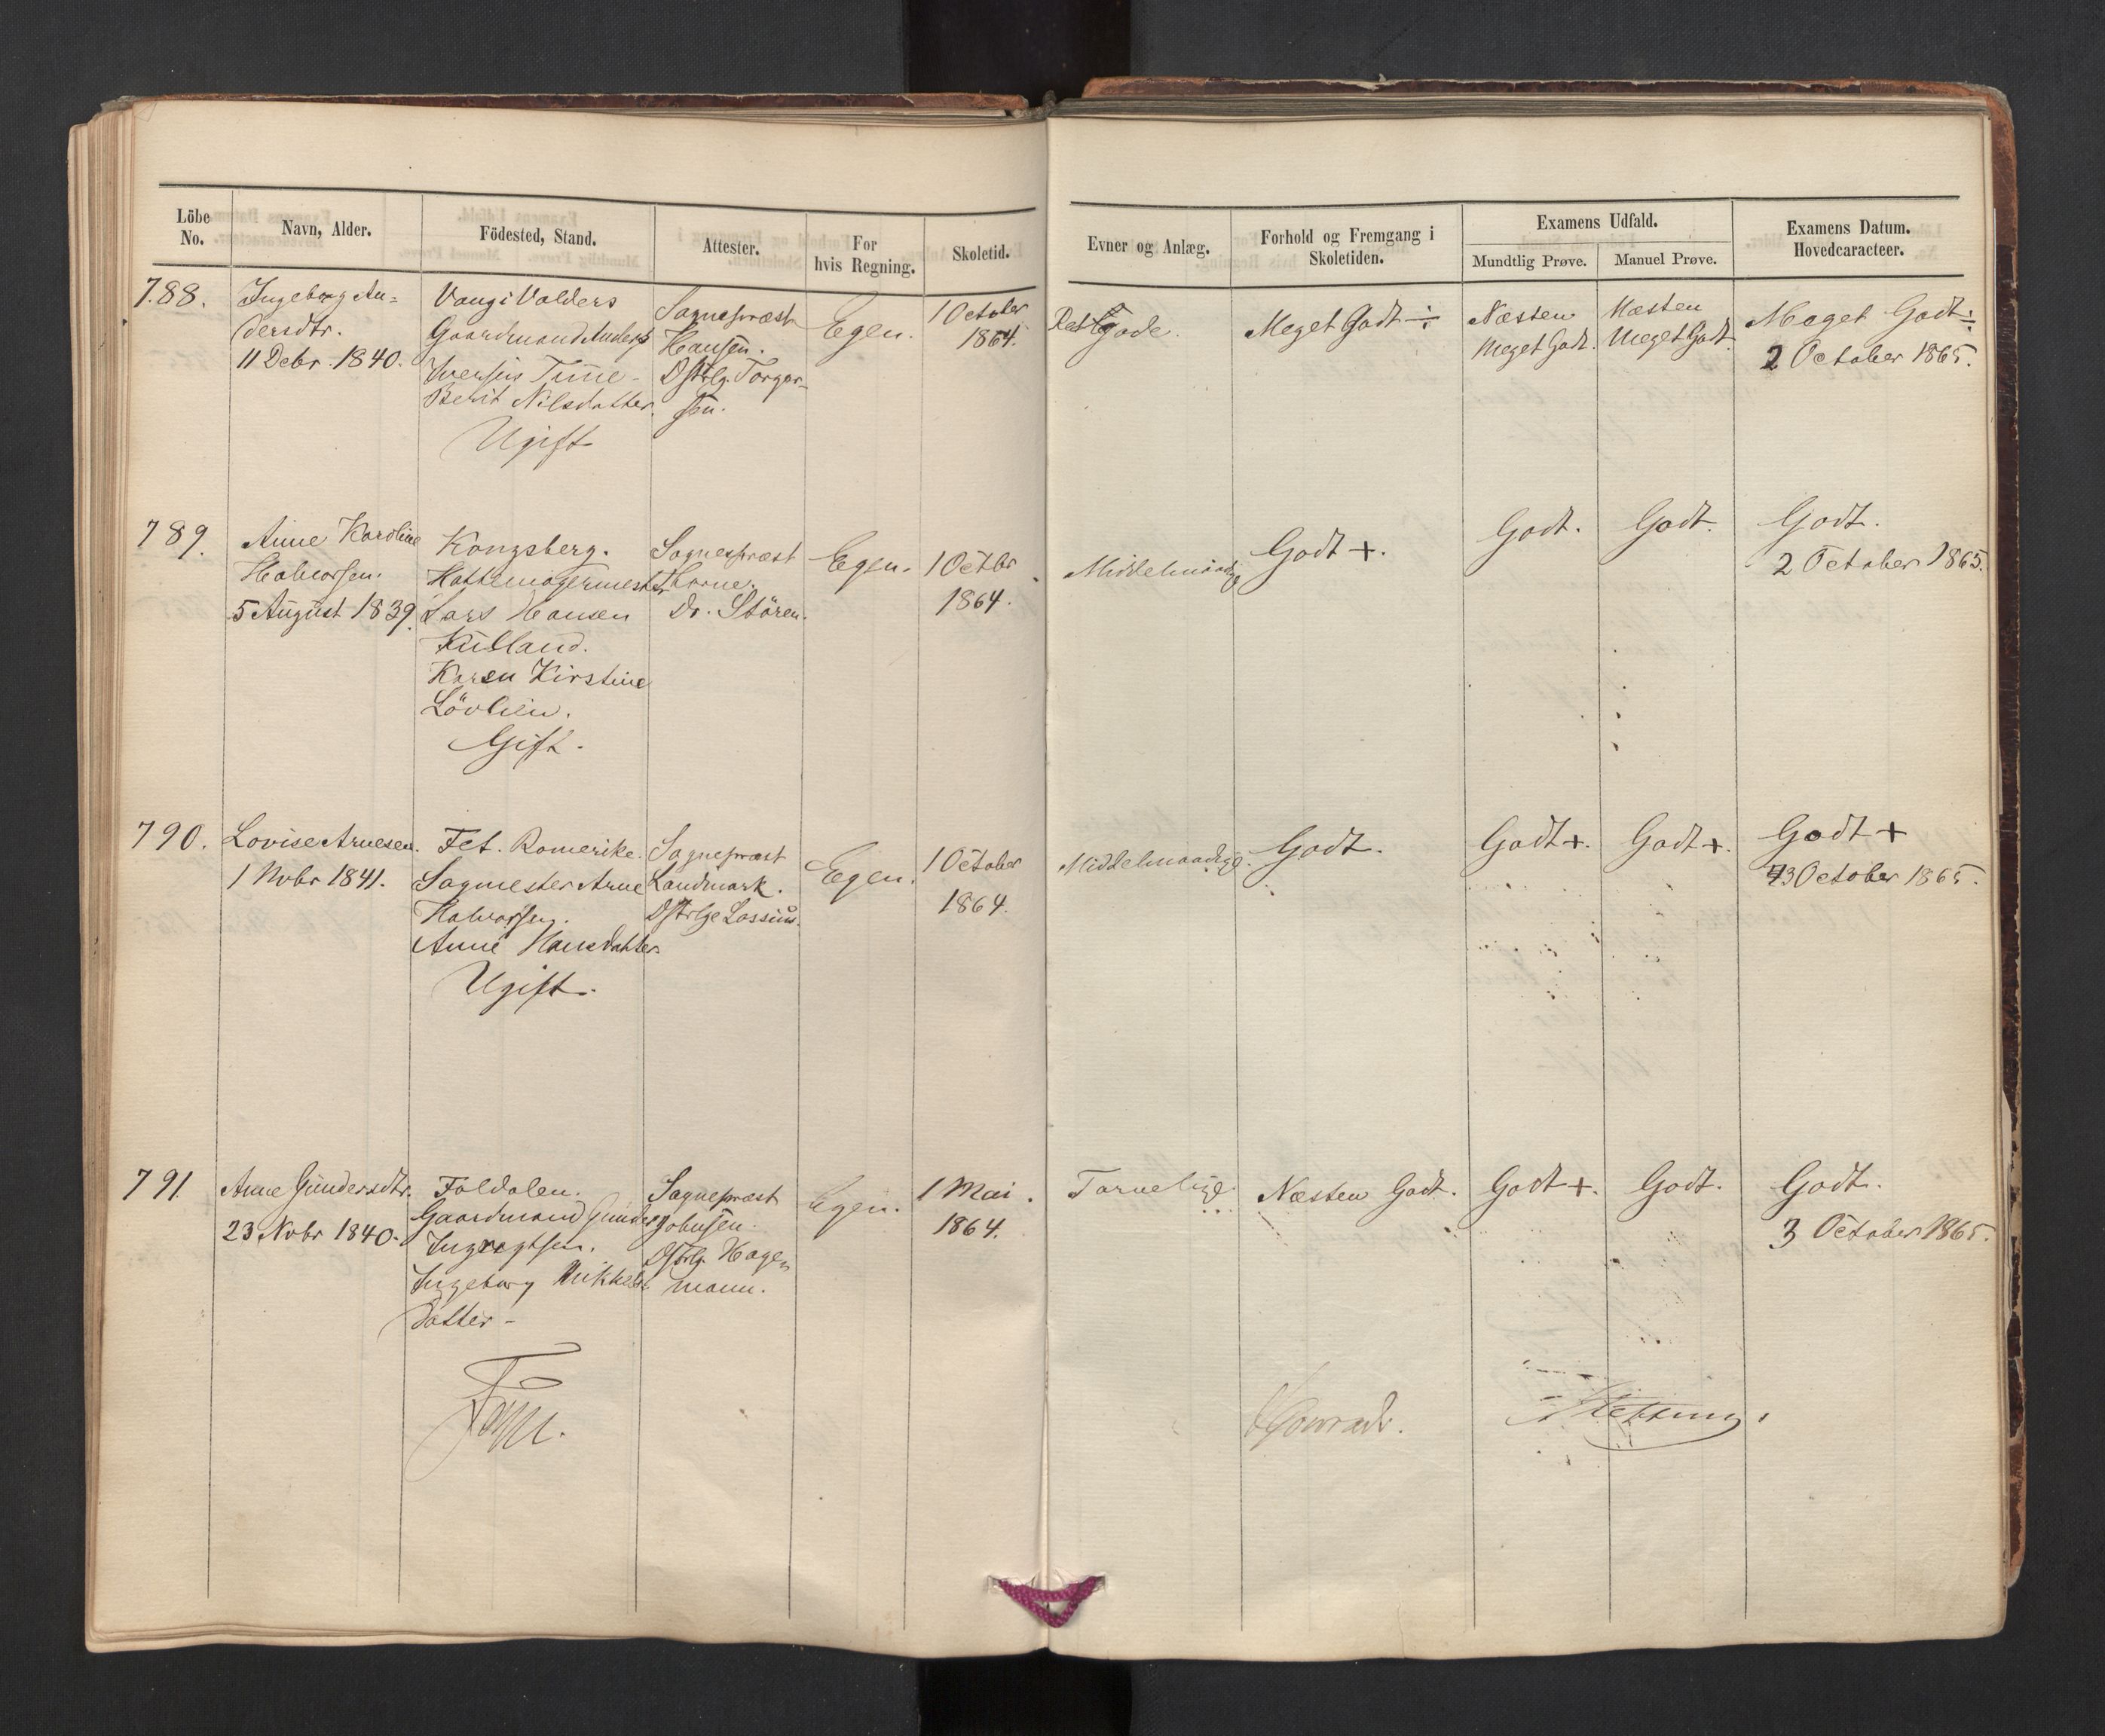 Löbe No.
Navn, Alder.
Födested, Stand.
Attester.
For hvis Regning.
Skoletid.
Evner og Anlæg.
Forhold og Fremgang i Skoletiden.
Examens Udfald.
Mundtlig Prøve.
Manuel Prøve.
Examens Datum.
Hovedcaracteer.
788.
Ingeborg An-
dersdtr.
11 Debr. 1840.
Vang i Valders
Gaardmand Anders
Iversen
Berit Nilsdatter.
Ugift
Sognepræst
Hansen.
Dstrlg. Torger-
sen.
Egen.
1 October
1864.
Ret gode.
Meget Godt ÷
Næsten
Meget Godt.
Næsten
Meget Godt.
Meget Godt ÷
2 October 1865.
789.
Anne Karoline
Halvorsen.
5 August 1839.
Kongsberg.
Hattemagermester
Lars Hansen
Karen Kirstine
Lövlien.
Gift.
Sognepræst
Dr. Stören.
Egen.
1 Octbr
1864.
Middelmaadige
Godt +.
Godt.
Godt.
Godt.
2 October 1865.
790.
Lovise Arnesen.
1 Nvbr 1841.
Fet. Romerike.
Sagmester Arne
Halvorsen.
Anne Hansdatter
Ugift.
Sognepræst
Landmark.
Dstrlge Lossius.
Egen.
1 October
1864.
Middelmaadige.
Godt.
Godt +.
Godt +.
Godt +
3 October 1865.
791.
Anne Gundersdtr.
23 Nvbr 1840.
Foldalen.
Gaardmand Gunder
Ingebrigtsen.
Ingeborg Mikkels-
datter -
Sognepræst
Johnsen.
Dstrlg. Hage-
mann.
Egen.
1 Mai.
1864.
Tarvelige
Næsten Godt.
Godt +.
Godt.
Godt.
3 October 1865.
Faye.
Conradi.